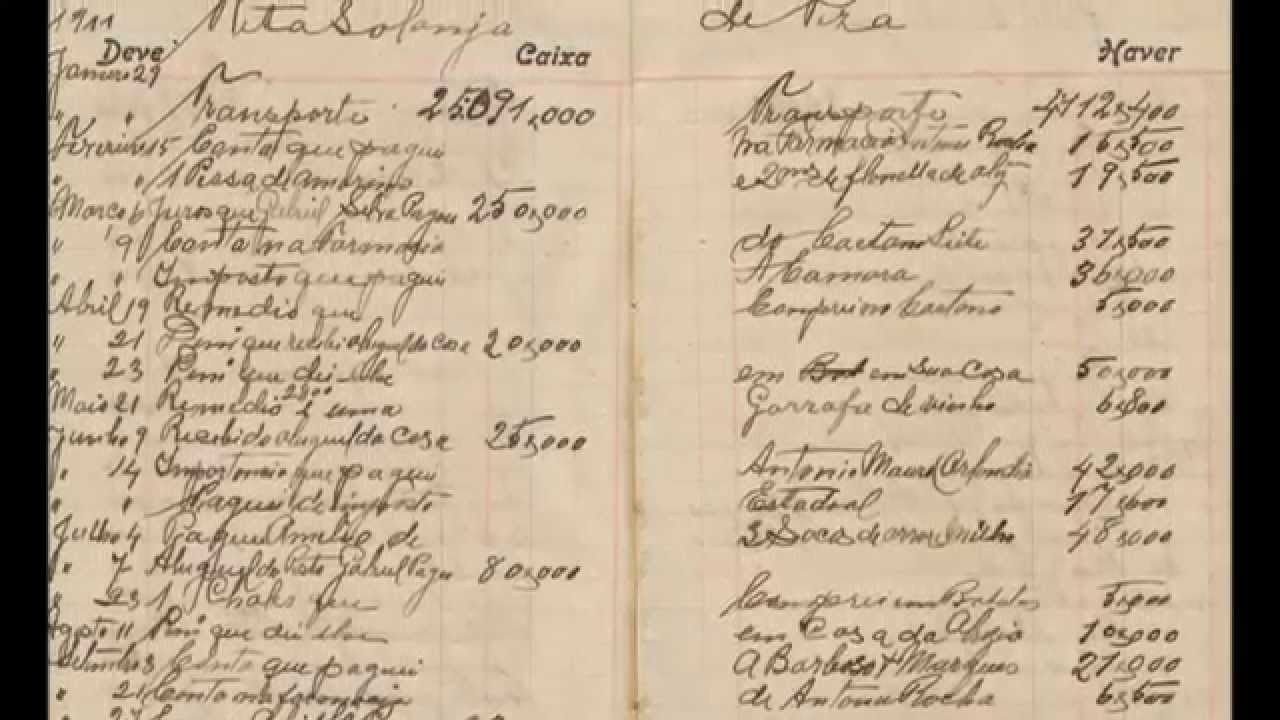 1911 Nita Solanja de Piza
Deve Caixa Haver
Janeiro 29
" " Transporte 25:091,000 Transporte 4112,400
15 Conta que paguei na Farmacia Rocha 16,500
" " 1 Pessa de e 2 m de flonella de 19,500
Março 6 Juros que Gabriel Silva Pagou 250,000
" 9 Conta na Farmacia do Caetano Leite 37,500
" " Imposto que paguei A Camara 36,000
Abril 19 Remedio que Comprei no Caetano 5,000
" 21 que recebi aluguel da casa 20,000
" 23 que dei em em sua Casa 50,000
Maio 21 Remedio 2800 e uma Garrafa de vinho 6,800
Junho 9 Recebido aluguel da Casa 25,000
" 14 Importancia que paguei Antonio Mauro 42,000
" " Paguei de imposto Estadoal 77,600
Julho 4 Paguei Amelio de 3 Sacas de arrous milho 48,000
" 7 Aluguel do Pasto Gabriel Pagou 80,000
" 23 1 Chales que Comprei em Batatas 5,000
Agosto 11 que dei em Casa da 10,000
Setembro 3 Conta que paguei A Barbosa & Marques 27,000
" 21 Conta na farmacia de Antonio Rocha 6,500